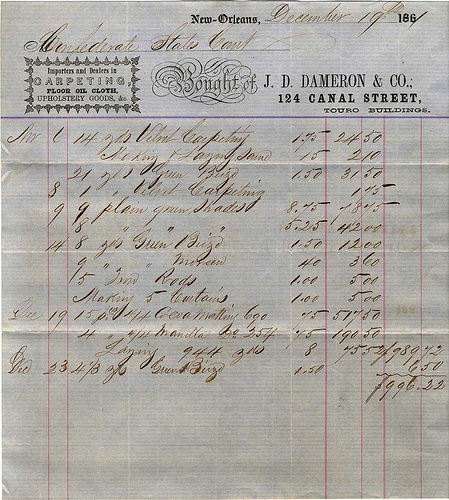 New-Orleans, December 19th 1861
Confederate States Court
Importers and Dealers in
CARPETING,
FLOOR OIL CLOTH,
UPHOLSTERY GOODS, &c.
Bought of J. D. DAMERON & CO.,
124 CANAL STREET,
TOURO BUILDINGS.
Nov 6 14 yds Velvet Carpeting 1.75 24 50
Making & Laying Same 15 2 10
21 yds Green Baize 1.50 31 50
8 1 " Velvet Carpeting 1 75
9 9 plain green Shades 8.75 78 75
8 " " " 5.25 42 00
14 8 yds Green Baize 1.50 12 00
9 " " Moreen 40 3 60
5 Iron Rods 1.00 5 00
Making 5 Curtains, 1.00 5 00
Dec 19 15 ps 4/4 Cocoa Matting 690 75 517 50
4 " 4/4 Manilla Do 254 75 190 50
Laying 944 yds 8 75 52 $989 72
Dec 23 4/3 yds Green Baize 1.50 6 50
$996.22